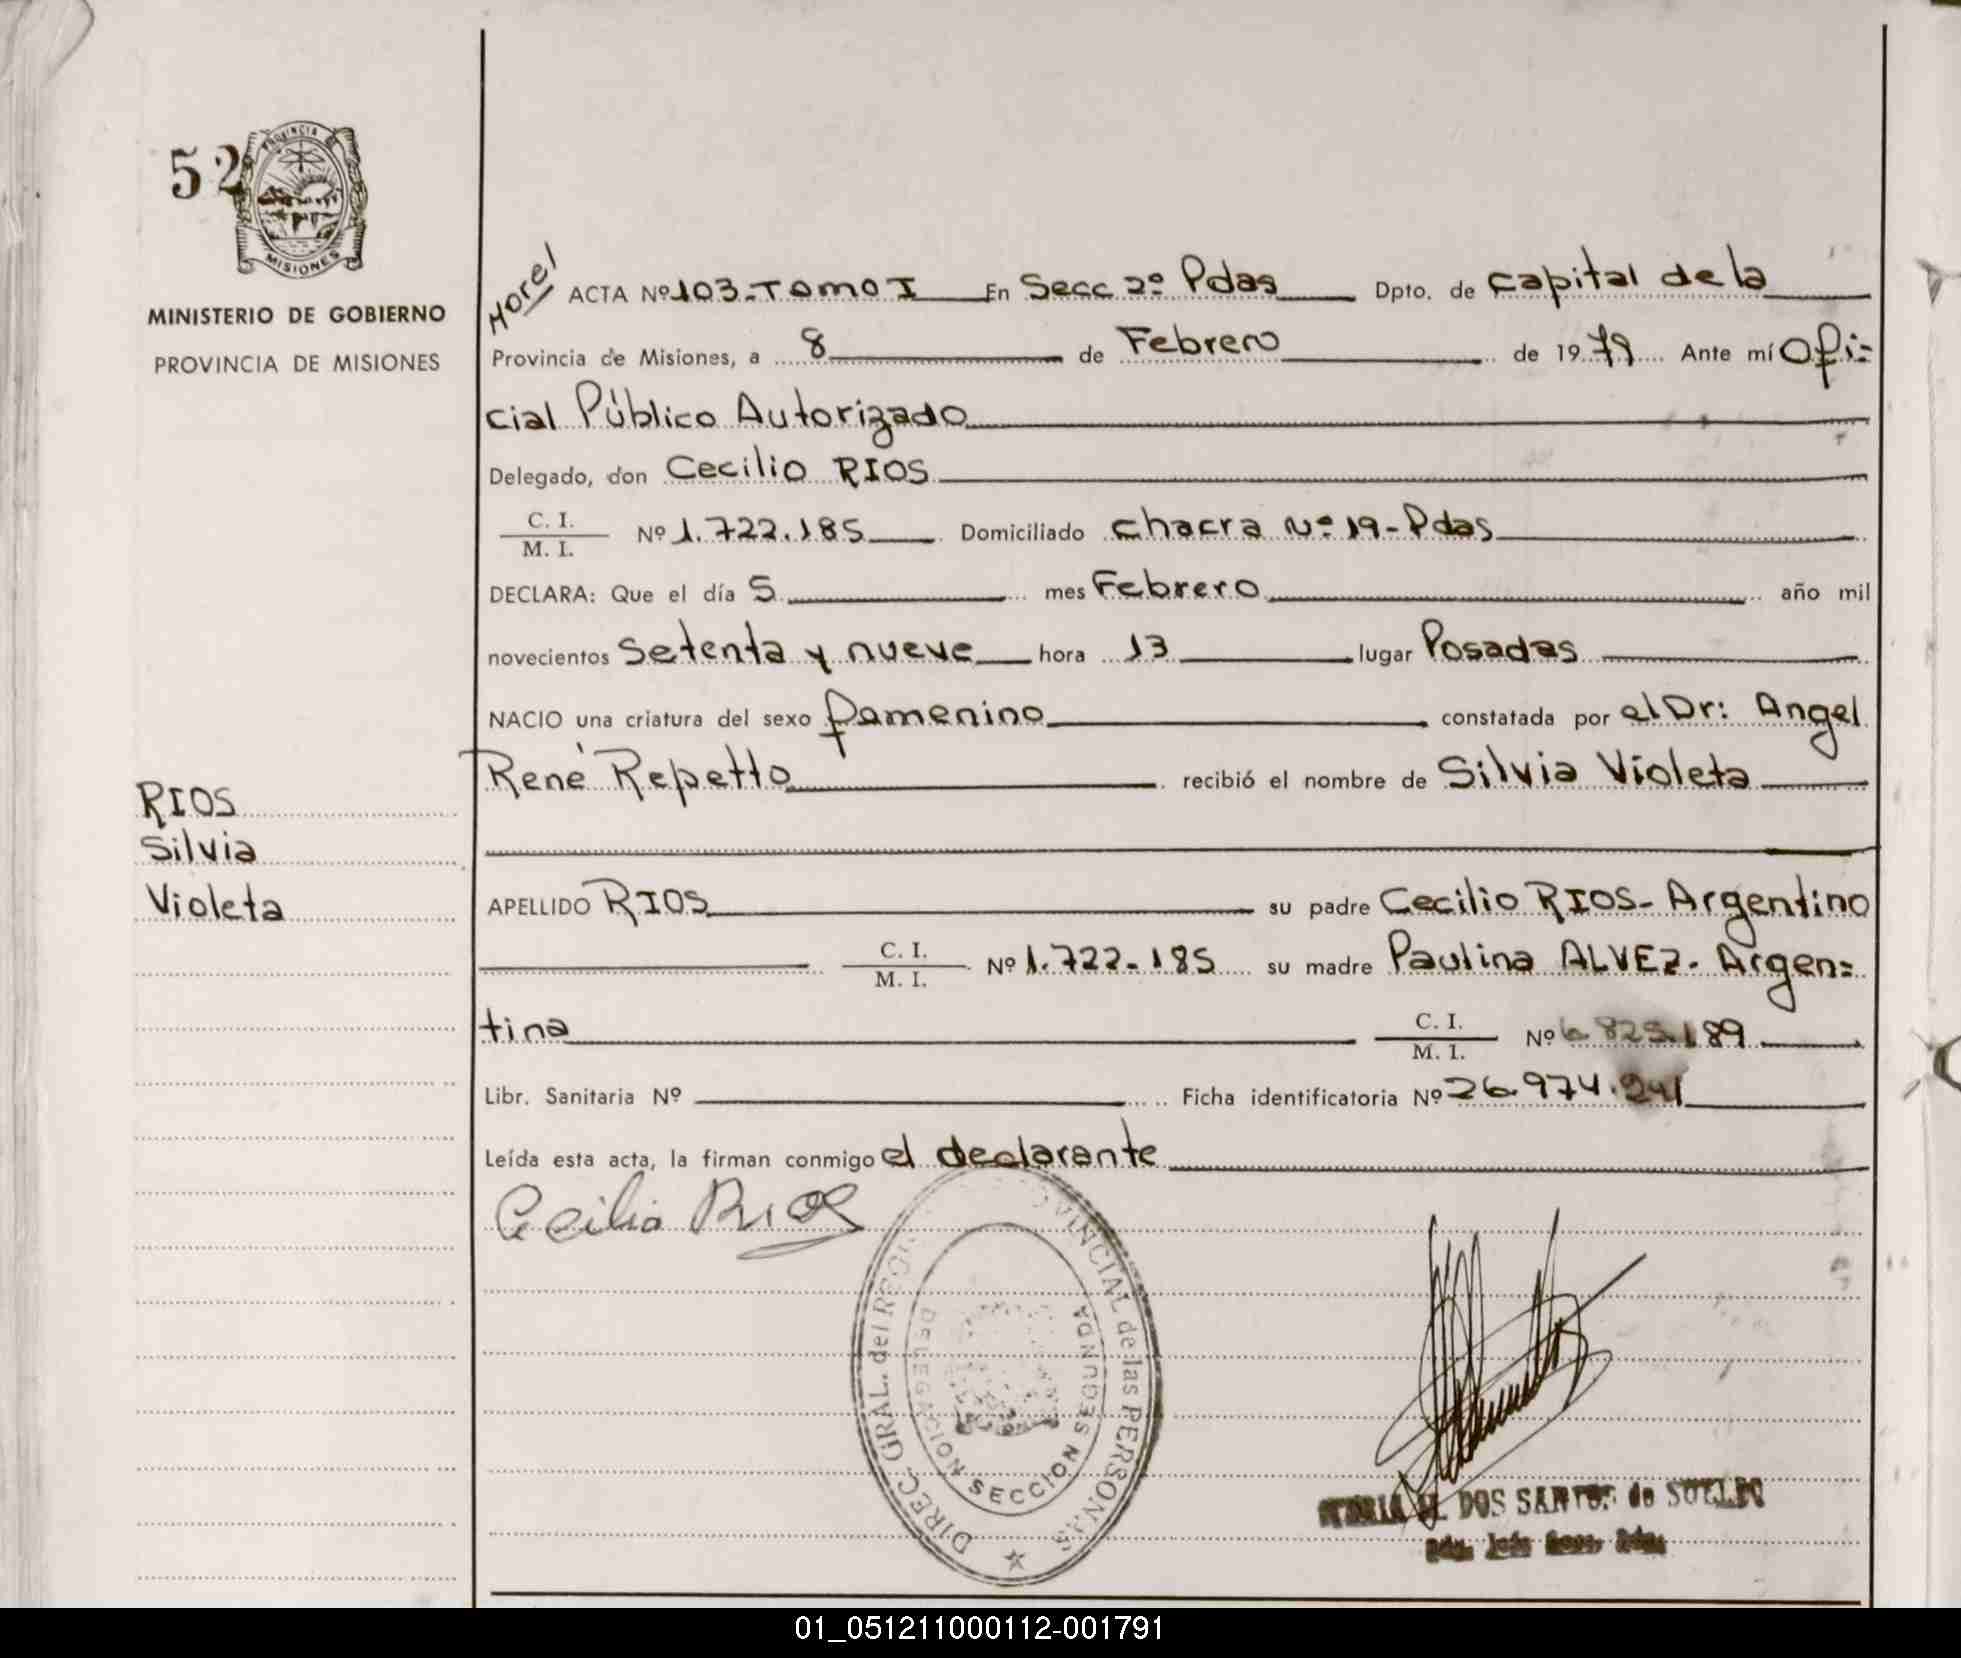 52
PROVINCIA DE
MISIONES
MINISTERIO DE GOBIERNO
PROVINCIA DE MISIONES
RIOS
Silvia
Violeta
ACTA Nº 103-Tomo I En Secc 2º Pdas Dpto. de Capital de la
Provincia de Misiones, a 8 de Febrero de 1979 Ante mí Ofi=
cial Público Autorizado
Delegado, don Cecilio RIOS
C. I.
M. I. Nº 1.722.185 Domiciliado Chacra Nº 19-Pdas
DECLARA: Que el día 5 mes Febrero año mil
novecientos Setenta y nueve hora 13 lugar Posadas
NACIO una criatura del sexo famenino constatada por el Dr: Angel
René Repetto recibió el nombre de Silvia Violeta
APELLIDO RIOS su padre Cecilio RIOS- Argentino
C. I.
M. I. Nº 1.722-185 su madre Paulina ALVEZ- Argen=
tina C. I.
M. I. Nº 6.825.189
Libr. Sanitaria Nº Ficha identificatoria Nº 26.974.241
Leída esta acta, la firman conmigo el declarante
Cecilio Rios
DIREC. GRAL. del PROVINCIAL de las PERSONAS
DELEGACION SECCION SEGUNDA
DOS SANTOS de
01_051211000112-001791